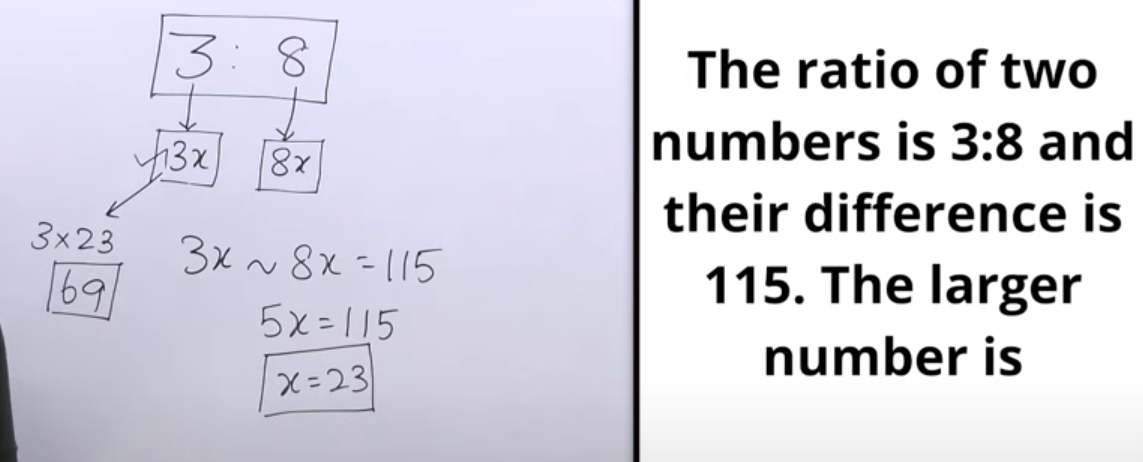 3 : 8
3x 8x
3×23
69
3x ~ 8x = 115
5x = 115
x = 23
The ratio of two
numbers is 3:8 and
their difference is
115. The larger
number is